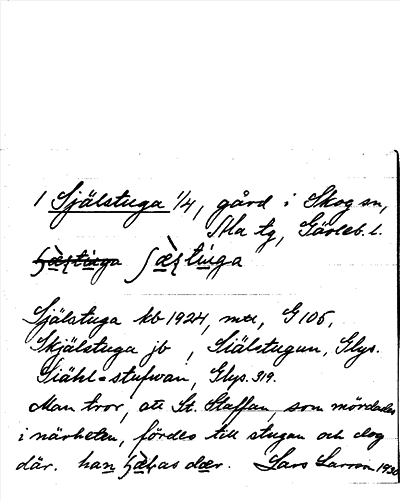 1 Själstuga 1/4, gård i Skog sn,
Ala tg, Gävleb. l.
ʃæ̀ʂtu̇ga
Själstuga kb 1924, G 105,
Skjälstuga jb , Siälstugun, Glys.
Siähl=stufwan, Glys. 319.
Man tror, att St. Staffan, som mördades
i närheten, fördes till stugan och dog
där. han dær. Lars Larson 1930